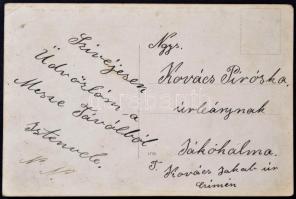 Szivéjesen
Üdvözlöm a
Messze Távolból
Istenvele.
N. N.
Ngys.
Kovács Piróska
úrleánynak
Jákóhalma.
T. Kovács Jakab úr
címén